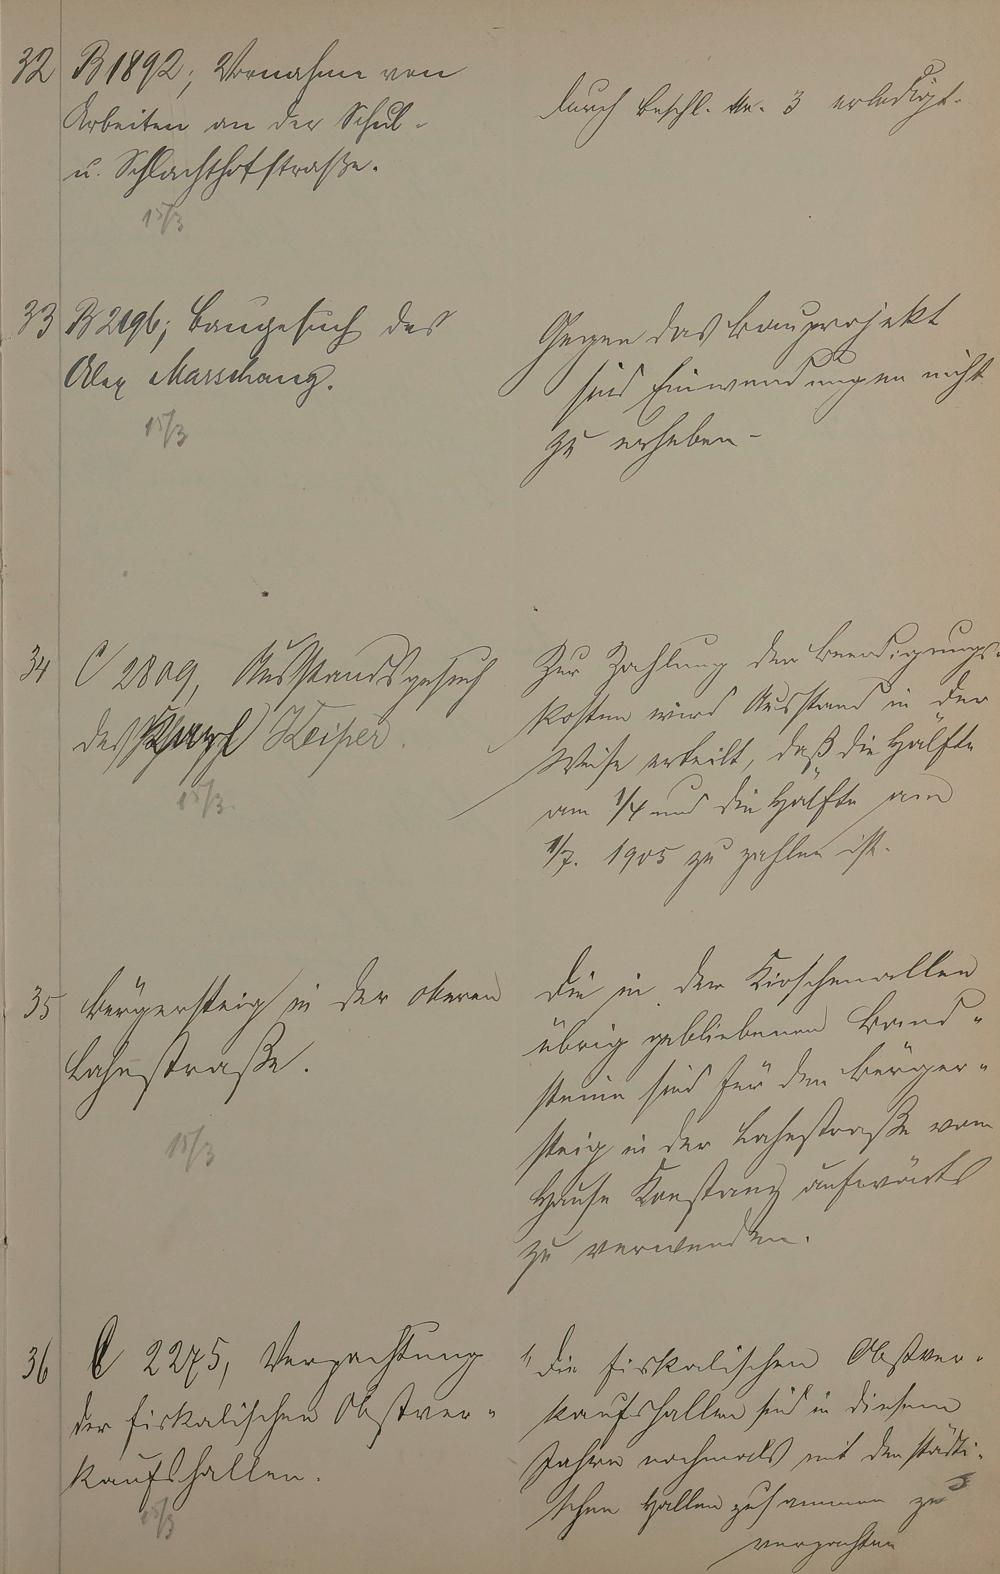 32 B 1892; Vornahme von
Arbeiten an der Schul-
u. Schlachthofstraße.
15/3
durch Beschl. Nr. 3 erledigt.
33 B 2196; Baugesuch des
Alex Marschang.
15/3
Gegen das Bauprojekt
sind Einwendungen nicht
zu erheben.
34 C 2809, Ausstandsgesuch
des Keiper.
15/3.
Zur Zahlung der Beerdigungs-
kosten wird Ausstand in der
Weise erteilt, daß die Hälfte
am 1/4 und die Hälfte am
1/7. 1905 zu zahlen ist.
35 Bürgersteig in der oberen
Lahnstraße.
15/3
Die in den Kirschenallen
übrig gebliebenen Rand-
steine sind für den Bürger-
steig in der Lahnstraße vom
Hause Konstanz aufwärts
zu verwenden.
36 C 2275, Verpachtung
der fiskalischen Obstver-
kaufshallen.
15/3
1, Die fiskalischen Obstver-
kaufshallen sind in diesem
Jahre nochmals mit den städti-
schen Hallen zusammen zu
verpachten